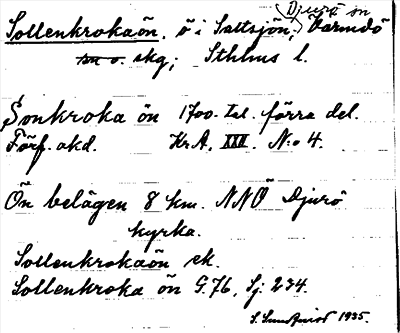 Sollenkrokaön, ö i Saltsjön, Djurö sn Värmdö
sn o. skg; Sthlms l.
Sonkroka ön 1700-tal. förra del.
Förf. okd. Kr.A. XXII. N:o 4.
Ön belägen 8 km. NNÖ Djurö
kyrka.
Sollenkrokaön ek.
Sollenkroka ön G.76, Sj. 234.
1935.